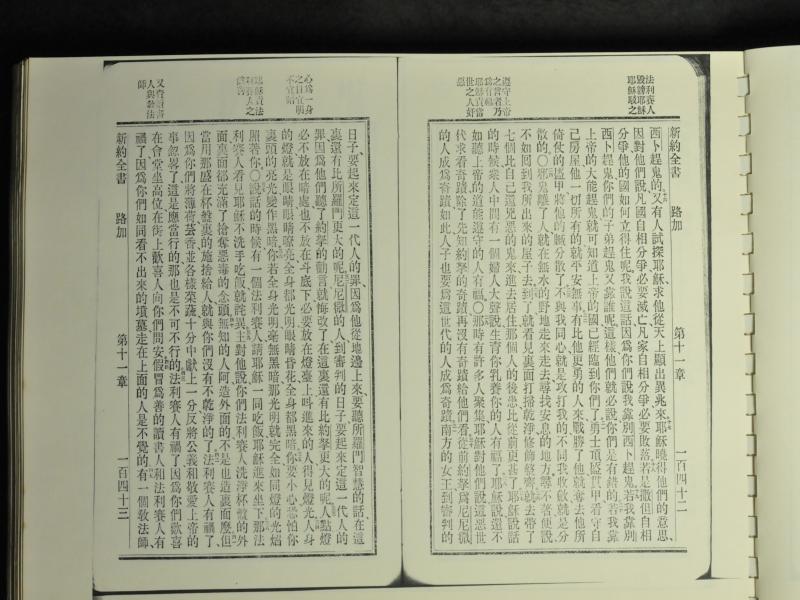 法利賽人
毀謗耶穌
耶穌駁之
遵守上帝
之言者乃
爲有福
耶穌責當
世之人奸
惡
新約全書 路加 第十一章 一百四十二
西卜趕鬼的又有人試探耶穌求他從天上顯出異兆來耶穌曉得他們的意思
因對他們說凡國自相分爭必要滅亡凡家自相分爭必要敗落若是撒但自相
分爭他的國如何立得住呢我說這話因爲你們說我靠別西卜趕鬼若我靠別
西卜趕鬼你們的子弟趕鬼又靠誰呢這樣他們就必說你們是有錯的若我靠
上帝的大能趕鬼就可知道上帝的國已經臨到你們了勇士頂盔貫甲看守自
己房屋他一切所有的就平安無事有比他更勇的人來戰勝了他就奪去他所
倚仗的盔甲將他的贓分散了不與我同心就是攻打我的不同我收斂就是分
散的〇邪鬼離了人就在無水的野地走來走去尋找安息的地方尋不著便說
不如回到我所出來的屋子去到了就看見裏面打掃乾淨修飾整齊就去帶了
七個比自己還兇惡的鬼來進去居住那個人的後患比從前更甚了耶穌說話
的時候衆人中間有一個婦人大聲說生育你乳養你的人有福了耶穌說還不
如聽上帝的道能遵守的人有福〇那時有許多人聚集耶穌對他們說這惡世
代求看奇蹟除了先知約拏的奇蹟再沒有奇蹟給他們看從前約拏爲尼尼微
的人成爲奇蹟如此人子也要爲這世代的人成爲奇蹟南方的女王到審判的
心爲一身
之目宜明
不宜暗
耶穌責法
利賽人之
假善
又責讀書
人與敎法
師
日子要起來定這一代人的罪因爲他從地邊上來要聽所羅門智慧的話在這
裏還有比所羅門更大的呢尼尼微的人到審判的日子要起來定這一代人的
罪因爲他們聽了約拏的勸言就悔改了在這裏還有比約拏更大的呢人點燈
必不放在暗處也不放在斗底下必要放在燈臺上叫進來的人得見燈光人身
的燈就是眼睛眼睛瞭亮全身都光明眼睛昏花全身都黑暗你要小心恐怕你
裏頭的亮光變作黑暗你若全身光明毫無黑暗那光明就完全如同燈的光焰
照著你〇說話的時候有一個法利賽人請耶穌一同吃飯耶穌進來坐下那法
利賽人看見耶穌不洗手吃飯就詫異主對他說你們法利賽人洗淨杯盤的外
面裏面都充滿了搶奪惡毒的念頭無知的人阿造外面的不是也造裏面麼但
當用那盛在杯盤裏的施捨給人就與你們沒有不乾淨的了法利賽人有禍了
因爲你們將薄荷芸香並各樣菜蔬十分中獻上一分反將公義和敬愛上帝的
事忽畧了這是應當行的那也是不可不行的法利賽人有禍了因爲你們歡喜
在會堂坐高位在街上歡喜人向你們問安假冒爲善的讀書人和法利賽人有
禍了因爲你們如同看不出來的墳墓走在上面的人是不覺的有一個敎法師
新約全書 路加 第十一章 一百四十三